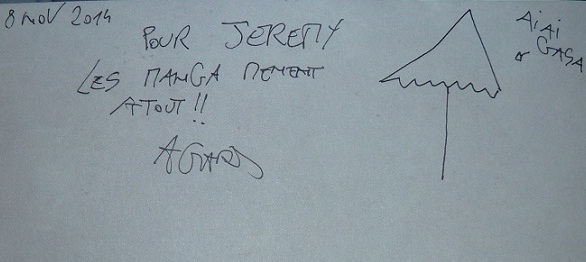 8 NOV 2014
POUR JEREMY
LES MANGA MENENT
A TOUT !!
AGARD
Ai Ai
GASA